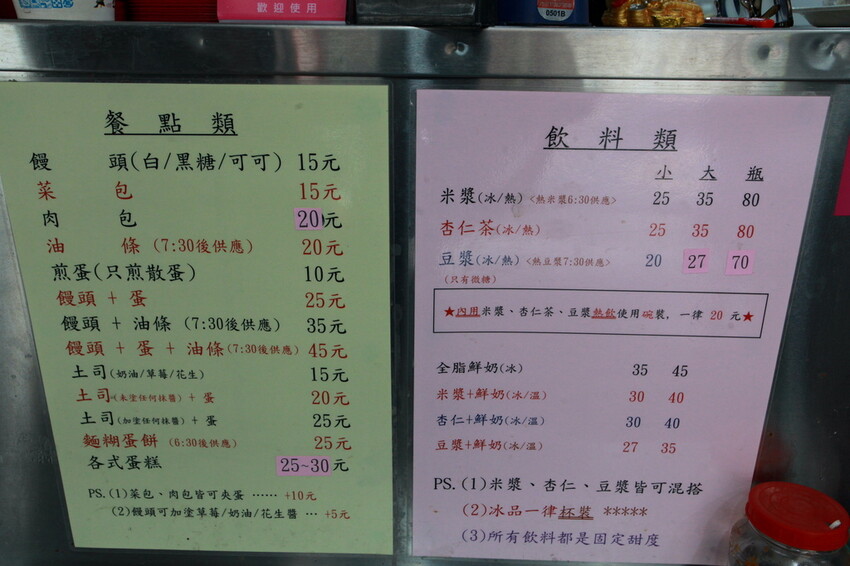 歡迎使用
0501B
餐點類
饅頭(白/黑糖/可可) 15元
菜包 15元
肉包 20元
油條 (7:30後供應) 20元
煎蛋(只煎散蛋) 10元
饅頭 + 蛋 25元
饅頭 + 油條 (7:30後供應) 35元
饅頭 + 蛋 + 油條(7:30後供應) 45元
土司(奶油/草莓/花生) 15元
土司(未塗任何抹醬) + 蛋 20元
土司(加塗任何抹醬) + 蛋 25元
麵糊蛋餅 (6:30後供應) 25元
各式蛋糕 25~30元
PS.(1)菜包、肉包皆可夾蛋 …… +10元
(2)饅頭可加塗草莓/奶油/花生醬 … +5元
飲料類
小 大 瓶
米漿(冰/熱) <熱米漿6:30供應> 25 35 80
杏仁茶(冰/熱) 25 35 80
豆漿(冰/熱) <熱豆漿7:30供應> 20 27 70
(只有微糖)
★內用米漿、杏仁茶、豆漿熱飲使用碗裝，一律 20 元★
全脂鮮奶(冰) 35 45
米漿+鮮奶(冰/溫) 30 40
杏仁+鮮奶(冰/溫) 30 40
豆漿+鮮奶(冰/溫) 27 35
PS.(1)米漿、杏仁、豆漿皆可混搭
(2)冰品一律杯裝 *****
(3)所有飲料都是固定甜度